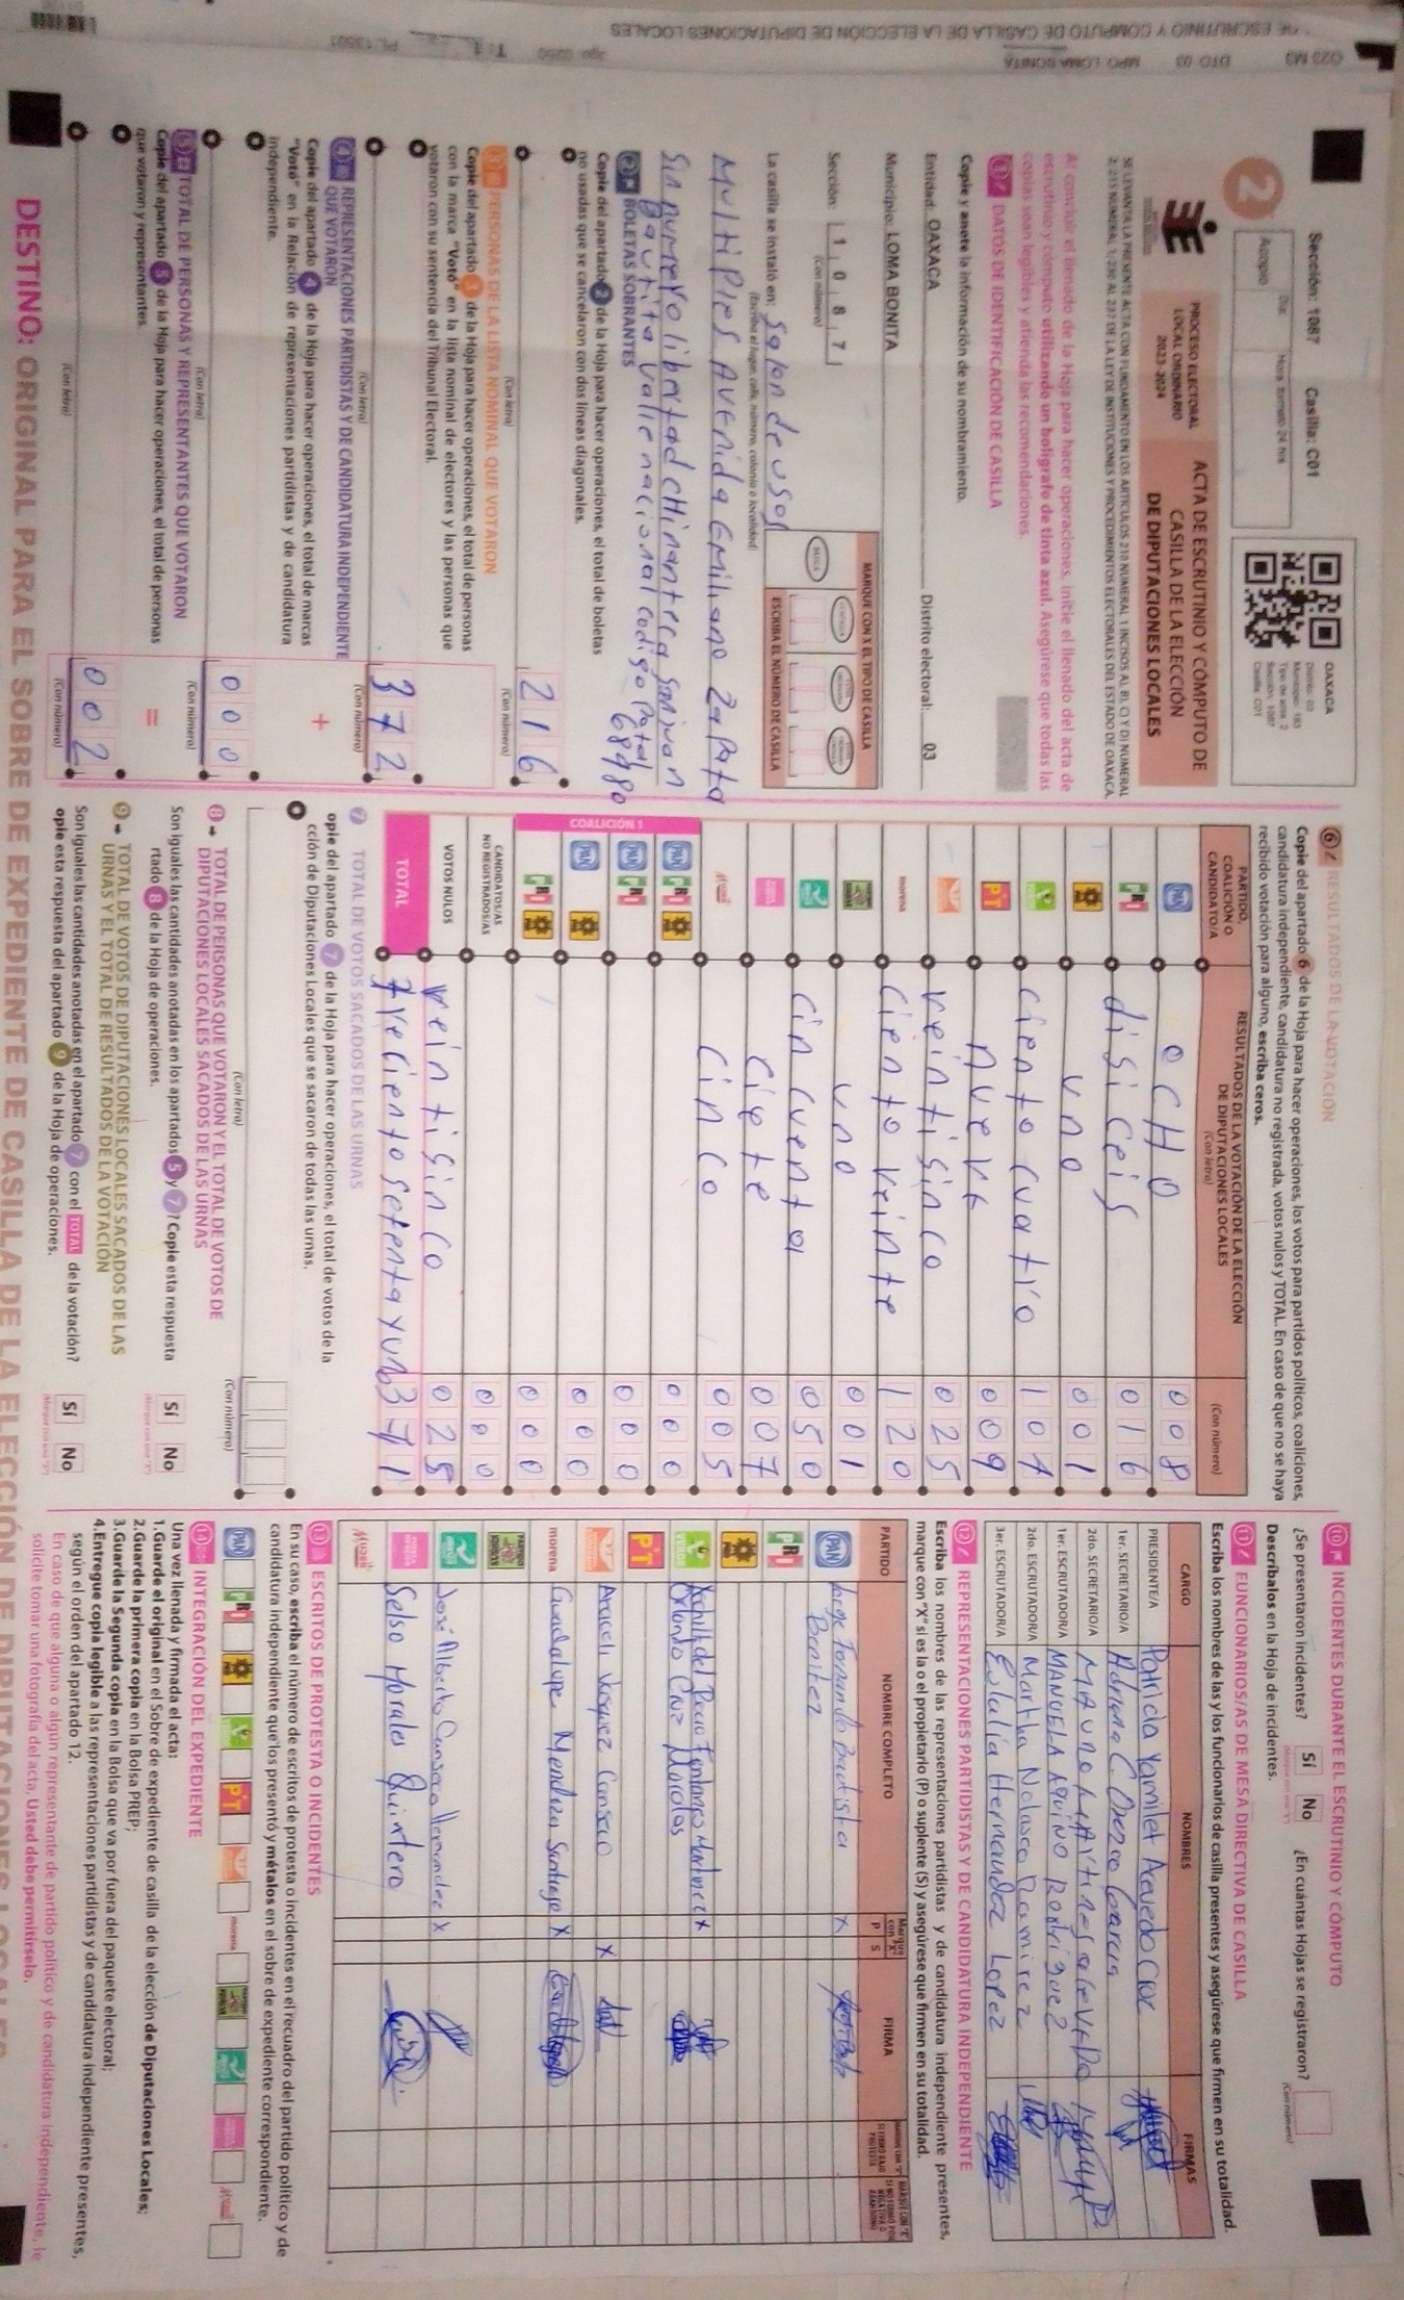 Sección: 1087 Casilla: C01
OAXACA
Distrito: 03
Municipio: 183
Tipo de acta: 2
Sección: 1087
Casilla: C01
2
Acopio
Día:
Hora: formato 24 hrs
PROCESO ELECTORAL
LOCAL ORDINARIO
2023-2024
ACTA DE ESCRUTINIO Y CÓMPUTO DE
CASILLA DE LA ELECCIÓN
DE DIPUTACIONES LOCALES
SE LEVANTA LA PRESENTE ACTA CON FUNDAMENTO EN LOS ARTÍCULOS 210 NUMERAL 1 INCISOS A), B), C) Y D) NUMERAL
2; 215 NUMERAL 1; 230 AL 237 DE LA LEY DE INSTITUCIONES Y PROCEDIMIENTOS ELECTORALES DEL ESTADO DE OAXACA.
Al concluir el llenado de la Hoja para hacer operaciones, inicie el llenado del acta de
escrutinio y cómputo utilizando un bolígrafo de tinta azul. Asegúrese que todas las
copias sean legibles y atienda las recomendaciones.
1 DATOS DE IDENTIFICACIÓN DE CASILLA
Copie y anote la información de su nombramiento.
Entidad: OAXACA Distrito electoral: 03
Municipio: LOMA BONITA
Sección: 1 0 8 7
(Con número)
MARQUE CON X EL TIPO DE CASILLA
BÁSICA
ESCRIBA EL NÚMERO DE CASILLA
La casilla se instaló en: Salon de usos
(Escriba el lugar, calle, número, colonia o localidad)
Multiples Avenida Emiliano Zapata
Sin numero libertad cHinanteca San juan
Bautita valle nacional codigo Patal 68480
2 BOLETAS SOBRANTES
Copie del apartado 2 de la Hoja para hacer operaciones, el total de boletas
no usadas que se cancelaron con dos líneas diagonales.
216
(Con letra) (Con número)
3 PERSONAS DE LA LISTA NOMINAL QUE VOTARON
Copie del apartado 3 de la Hoja para hacer operaciones, el total de personas
con la marca "Votó" en la lista nominal de electores y las personas que
votaron con su sentencia del Tribunal Electoral.
372
(Con letra) (Con número)
4 REPRESENTACIONES PARTIDISTAS Y DE CANDIDATURA INDEPENDIENTE
QUE VOTARON
Copie del apartado 4 de la Hoja para hacer operaciones, el total de marcas
"Votó" en la Relación de representaciones partidistas y de candidatura
independiente.
+
000
(Con letra) (Con número)
5 TOTAL DE PERSONAS Y REPRESENTANTES QUE VOTARON
Copie del apartado 5 de la Hoja para hacer operaciones, el total de personas
que votaron y representantes.
=
002
(Con letra) (Con número)
6 RESULTADOS DE LA VOTACIÓN
Copie del apartado 6 de la Hoja para hacer operaciones, los votos para partidos políticos, coaliciones,
candidatura independiente, candidatura no registrada, votos nulos y TOTAL. En caso de que no se haya
recibido votación para alguno, escriba ceros.
PARTIDO,
COALICIÓN O
CANDIDATO/A
RESULTADOS DE LA VOTACIÓN DE LA ELECCIÓN
DE DIPUTACIONES LOCALES
(Con letra)
(Con número)
PAN ocHo 008
PRI disiceis 016
PRD uno 001
VERDE ciento cuatro 104
PT nueve 009
veintisinco 025
morena ciento veinte 120
uno 001
cincuenta 050
ciete 007
Mujer cinco 005
COALICIÓN 1
PAN PRI PRD 000
PAN PRI 000
PAN PRD 000
PRI PRD 000
CANDIDATOS/AS
NO REGISTRADOS/AS 000
VOTOS NULOS veintisinco 025
TOTAL treciento setenta y uno 371
7 TOTAL DE VOTOS SACADOS DE LAS URNAS
opie del apartado 7 de la Hoja para hacer operaciones, el total de votos de la
cción de Diputaciones Locales que se sacaron de todas las urnas.
(Con letra) (Con número)
8 TOTAL DE PERSONAS QUE VOTARON Y EL TOTAL DE VOTOS DE
DIPUTACIONES LOCALES SACADOS DE LAS URNAS
Son iguales las cantidades anotadas en los apartados 5 y 7? Copie esta respuesta
rtado 8 de la Hoja de operaciones.
Sí No
9 TOTAL DE VOTOS DE DIPUTACIONES LOCALES SACADOS DE LAS
URNAS Y EL TOTAL DE RESULTADOS DE LA VOTACIÓN
Son iguales las cantidades anotadas en el apartado 7 con el TOTAL de la votación?
opie esta respuesta del apartado 9 de la Hoja de operaciones.
Sí No
10 INCIDENTES DURANTE EL ESCRUTINIO Y CÓMPUTO
¿Se presentaron incidentes? Sí No ¿En cuántas Hojas se registraron?
(Con número)
Descríbalos en la Hoja de incidentes.
11 FUNCIONARIOS/AS DE MESA DIRECTIVA DE CASILLA
Escriba los nombres de las y los funcionarios de casilla presentes y asegúrese que firmen en su totalidad.
CARGO NOMBRES FIRMAS
PRESIDENTE/A Patricia Yamilet Acevedo Cruz
1er. SECRETARIO/A Adriana C. Orozco Garcia
2do. SECRETARIO/A Mauro Martines
1er. ESCRUTADOR/A MANUELA AQUINO RodriGuez
2do. ESCRUTADOR/A Martha Nolasco Ramirez
3er. ESCRUTADOR/A Eulalia Hernandez Lopez
12 REPRESENTACIONES PARTIDISTAS Y DE CANDIDATURA INDEPENDIENTE
Escriba los nombres de las representaciones partidistas y de candidatura independiente presentes,
marque con "X" si es la o el propietario (P) o suplente (S) y asegúrese que firmen en su totalidad.
PARTIDO NOMBRE COMPLETO Marque con "X" P S FIRMA
PAN Jorge Fernando Bautista X
Benitez
PRI
PRD
VERDE Xochitl del Rocio Martinez X
Orlando Cruz Nicolas
PT
Araceli Vasquez Canseco X
morena Guadalupe Mendoza Santiago X
José Alberto Canseco Hernandez X
Selso Morales Quintero
Mujer
13 ESCRITOS DE PROTESTA O INCIDENTES
En su caso, escriba el número de escritos de protesta o incidentes en el recuadro del partido político y de
candidatura independiente que los presentó y métalos en el sobre de expediente correspondiente.
PAN PRI PRD VERDE PT morena Mujer
14 INTEGRACIÓN DEL EXPEDIENTE
Una vez llenada y firmada el acta:
1.Guarde el original en el Sobre de expediente de casilla de la elección de Diputaciones Locales;
2.Guarde la primera copia en la Bolsa PREP;
3.Guarde la Segunda copia en la Bolsa que va por fuera del paquete electoral;
4.Entregue copia legible a las representaciones partidistas y de candidatura independiente presentes,
según el orden del apartado 12.
En caso de que alguna o algún representante de partido político y de candidatura independiente, le
solicite tomar una fotografía del acta, Usted debe permitírselo.
DESTINO: ORIGINAL PARA EL SOBRE DE EXPEDIENTE DE CASILLA DE LA ELECCIÓN DE DIPUTACIONES LOCALES
ESCRUTINIO Y COMPUTO DE CASILLA DE LA ELECCIÓN DE DIPUTACIONES LOCALES
023 M3 DTO 03 MPO LOMA BONITA